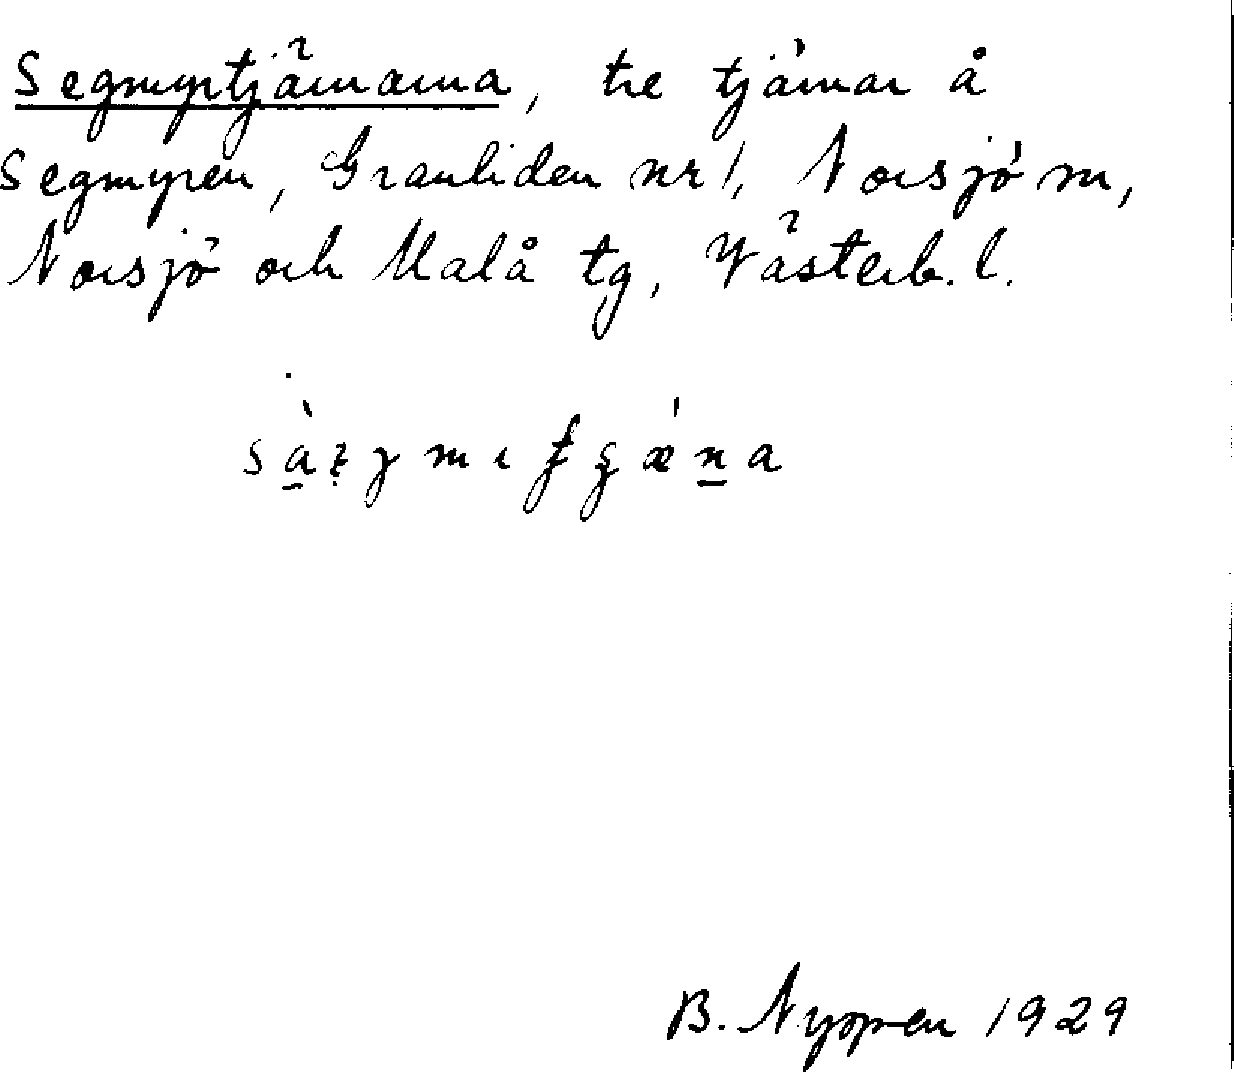 Segmyrtjärnarna, tre tjärnar å
Segmyren, Granliden nr 1, Norsjö sn,
Norsjö och Malå tg, Västerb. l.
B. Nygren 1929